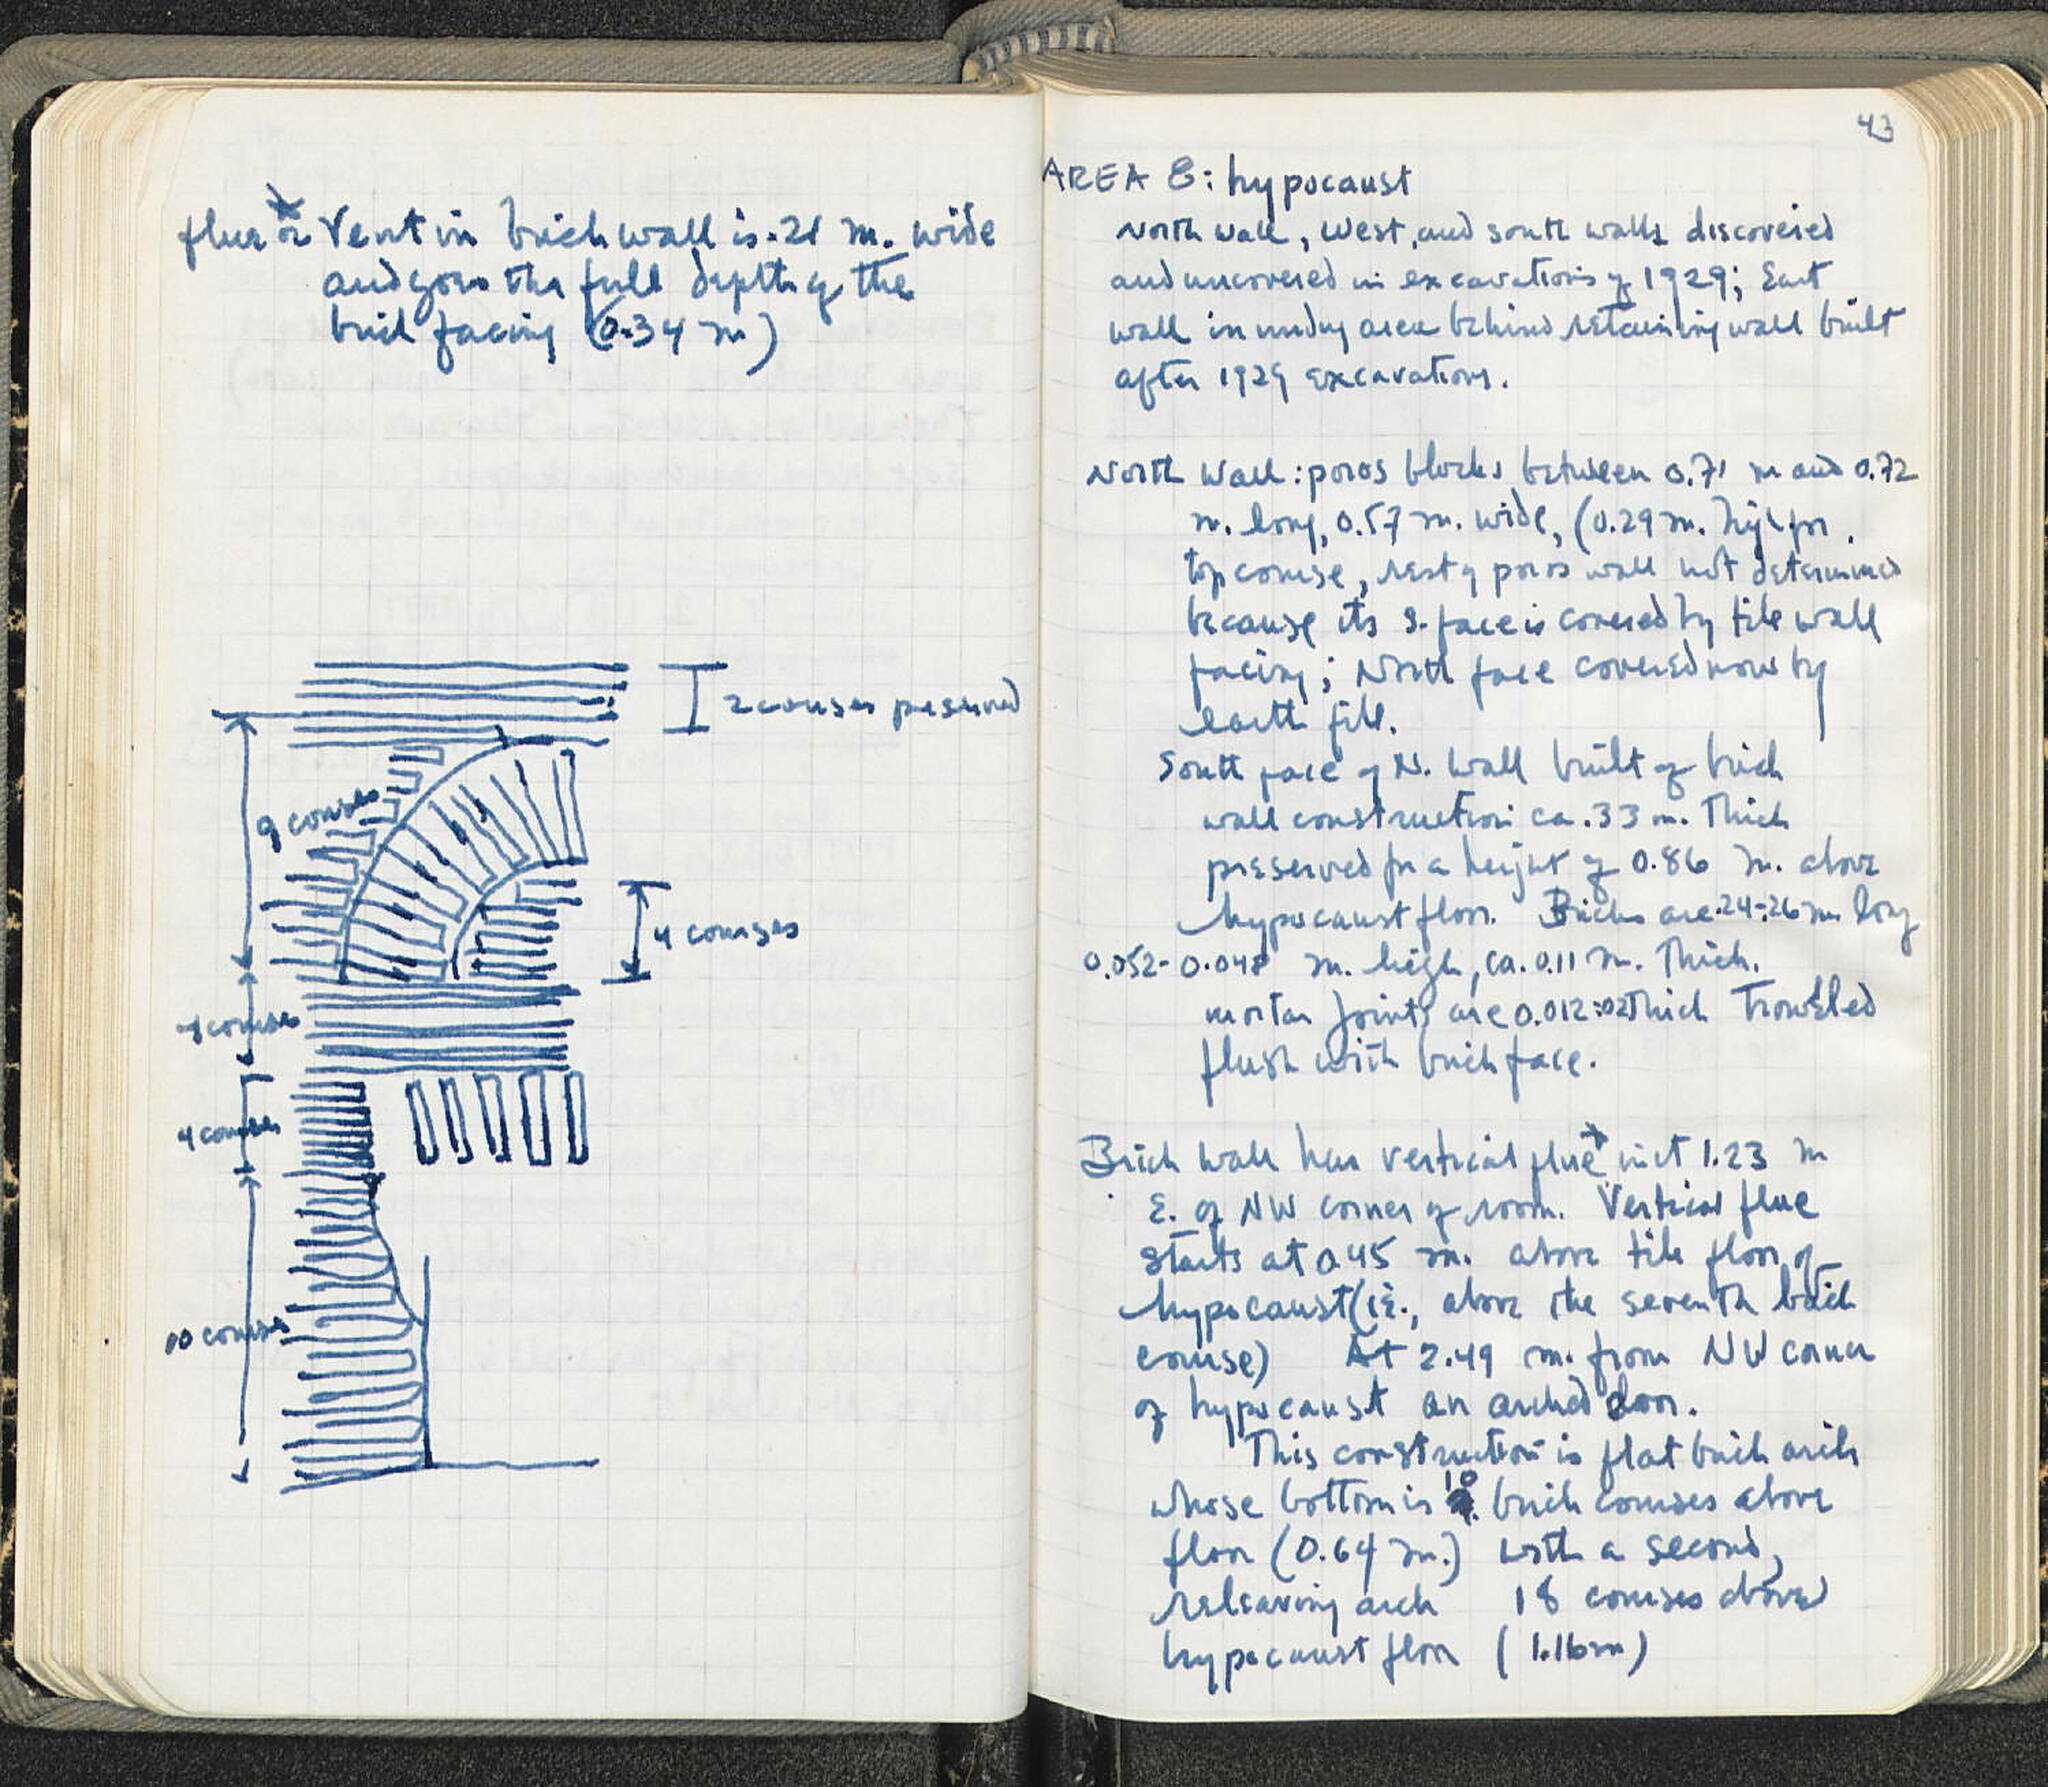 flue or Vent in brick wall is .21 m. wide
and goes the full depth of the
brick facing (0.34 m)
2 courses preserved
9 courses
4 courses
4 courses
4 courses
10 courses
43
AREA 8: hypocaust
North wall, West, and south walls discovered
and uncovered in excavations of 1929; East
wall in area behind retaining wall built
after 1929 excavations.
North Wall: poros blocks between 0.71 m and 0.72
m. long, 0.57 m. wide, (0.29 m. high for
top course, rest of poros wall not determined
because its S. face is covered by tile wall
facing; North face covered now by
earth fill.
South face of N. Wall built of brick
wall construction ca .33 m. Thick
preserved for a height of 0.86 m. above
hypocaust floor. Bricks are .24-.26 m long
0.052-0.048 m. high, ca. 0.11 m. Thick.
mortar joints are 0.012-.02 Thick Trowelled
flush with brick face.
Brick wall has vertical flue in it 1.23 m
E. of NW corner of room. Vertical flue
starts at 0.45 m. above tile floor of
hypocaust (i.e., above the seventh brick
course) At 2.49 m. from NW corner
of hypocaust an arched door.
This construction is flat brick arch
whose bottom is 10 brick courses above
floor (0.64 m.) with a second,
releaving arch 18 courses above
hypocaust floor (1.16 m)